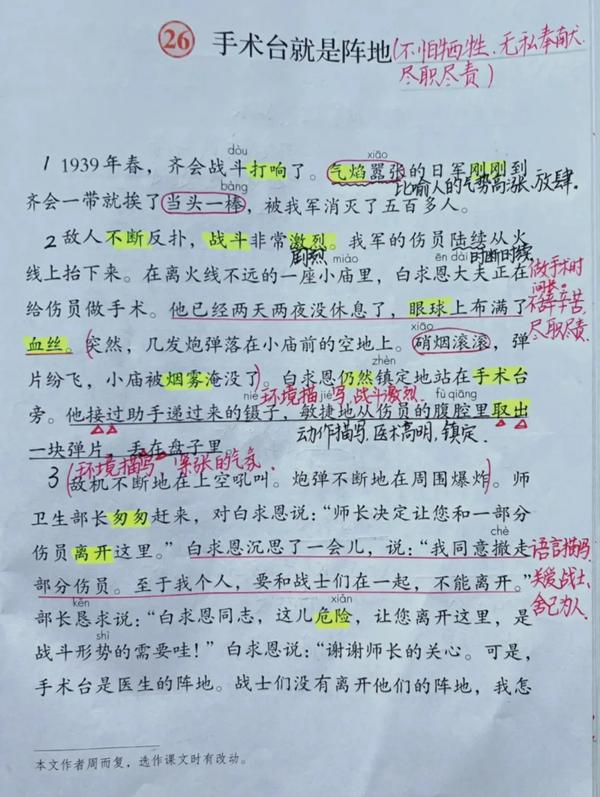 26 手术台就是阵地(不怕牺牲、无私奉献、
尽职尽责)
dòu xiāo
1 1939年春，齐会战斗打响了。气焰嚣张的日军刚刚到
比喻人的气势高涨、放肆。
bàng
齐会一带就挨了当头一棒，被我军消灭了五百多人。
2 敌人不断反扑，战斗非常激烈。我军的伤员陆续从火
剧烈 时断时续
miáo ēn dài
线上抬下来。在离火线不远的一座小庙里，白求恩大夫正在
做手术时
间长。
不辞辛苦、
尽职尽责.
给伤员做手术。他已经两天两夜没休息了，眼球上布满了
xiāo
血丝。(突然，几发炮弹落在小庙前的空地上。硝烟滚滚，弹
zhèn
片纷飞，小庙被烟雾淹没了)。白求恩仍然镇定地站在手术台
环境描写,战斗激烈.
niè jié fù qiāng
旁。他接过助手递过来的镊子，敏捷地从伤员的腹腔里取出
动作描写.医术高明,镇定.
一块弹片，丢在盘子里
(环境描写,紧张的气氛
3 敌机不断地在上空吼叫。炮弹不断地在周围爆炸)。师
卫生部长匆匆赶来，对白求恩说：“师长决定让您和一部分
chè
伤员离开这里。”白求恩沉思了一会儿，说：“我同意撤走
语言描写.
关爱战士、
舍己为人.
部分伤员。至于我个人，要和战士们在一起，不能离开。”
kěn xiǎn
部长恳求说：“白求恩同志，这儿危险，让您离开这里，是
shì
战斗形势的需要哇！”白求恩说：“谢谢师长的关心。可是，
手术台是医生的阵地。战士们没有离开他们的阵地，我怎
本文作者周而复，选作课文时有改动。